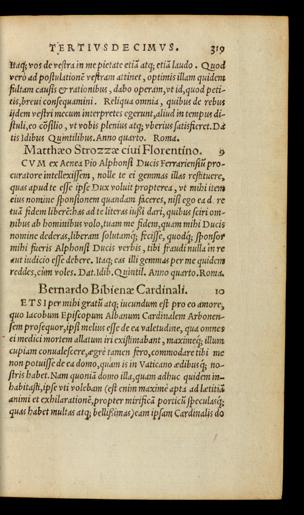 TERTIVSDECIMVS. 319
Itaq; vos de vestra in me pietate etiã atq; etiã laudo. Quod
verò ad postulationē vestram attinet, optimis illam quidem
fultam causis & rationibus, dabo operam, vt id, quod peti-
tis, breui consequamini. Reliqua omnia, quibus de rebus
ijdem vestri mecum interpretes egerunt, aliud in tempus di-
stuli, eo cōsilio, vt vobis plenius atq; vberius satisfieret. Da
tis Idibus Quintilibus. Anno quarto. Roma.
Matthæo Strozzæ ciui Florentino. 9
CVM ex Aenea Pio Alphonsi Ducis Ferrariensiũ pro-
curatore intellexissem, nolle te ei gemmas illas restituere,
quas apud te esse ipse Dux voluit propterea, vt mihi item
eius nomine sponsionem quandam faceres, nisi ego ea d. re
tuã fidem liberē: has ad te literas iußi dari, quibus sciri om-
nibus ab hominibus volo, tuam me fidem, quam mihi Ducis
nomine dederas, liberam solutamq́; fecisse, quodq́; sponsor
mihi fueris Alphonsi Ducis verbis, tibi fraudi nulla in re
aut iudicio esse debere. Itaq; eas illi gemmas per me quidem
reddes, cùm voles. Dat. Idib. Quintil. Anno quarto. Roma.
Bernardo Bibienæ Cardinali. 10
ETSI per mihi gratũ atq; iucundum est pro eo amore,
quo Iacobum Episcopum Albanum Cardinalem Arbonen-
sem prosequor, ipsi melius esse de ea valetudine, qua omnes
ei medici mortem allatum iri existimabant, maximeq́; illum
cupiam conualescere, ægrè tamen fero, commodare tibi me
non potuisse de ea domo, quam is in Vaticano ædibusq́; no-
stris habet. Nam quoniã domo illa, quam adhuc quidem in-
habitasti, ipse vti volebam (est enim maximè apta ad lætitiã
animi et exhilarationē, propter mirificã porticũ speculasq́;
quas habet multas atq; bellißimas) eam ipsam Cardinalis do